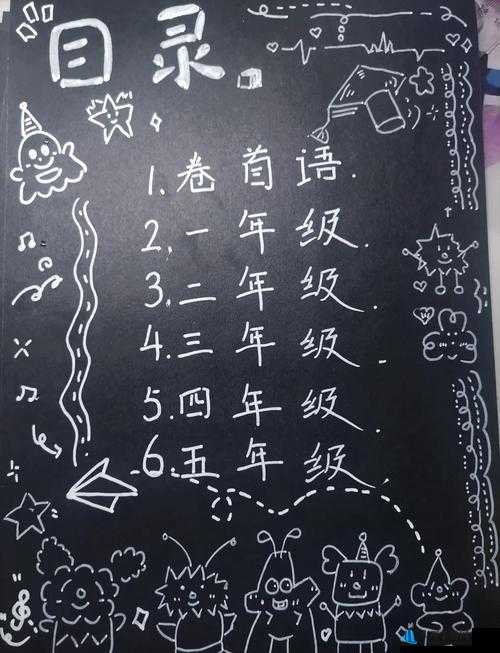 目录
1.卷首语.
2.一年级.
3.二年级.
4.三年级
5.四年级.
6.五年级.